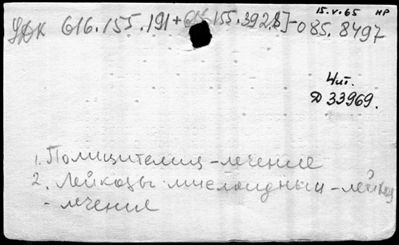 15.V.65 НР
УДК 616.155.191+ 155.392.8]-085.8497
Чит.
Д 33969.
1. Полицитемия - лечение
2. Лейкозы миелоидный - лейкоз
- лечение